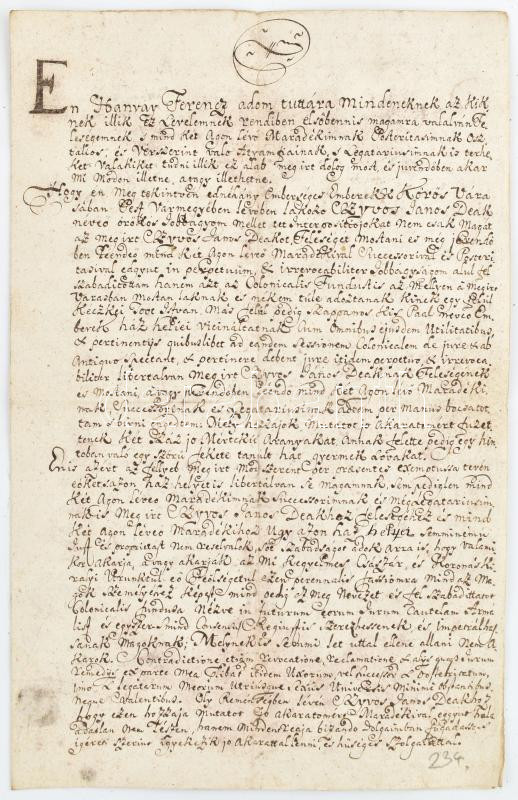 En Hanvay Ferencz adom tuttára Mindeneknek az kik
nek illik Ez Levelemnek rendiben elsobennis magamra vállalván fe
leségemnek s mind két Agon lévő Maradékimnak Posteritasimnak Osz
tállos, és Vérszerint való Atyámfiainak, s Legatariusimnak is terhe
ket valakiket tudni illik ez aláb meg irt dolog most, és jövendőben akar
Mi Módon illetne, avagy illethetne.
Hogy én meg tekintvén ednehány Emberséges Emberek Kőrös Vára
sában Pest Vármegyében lévőben lakozó Czyvos Janos Deák
nevéő örökös Jobbágyom mellet tet Interpositiojokat nem csak Magát
az meg irt Czyvos Janos Deákot, Feleségét Mostani és meg jövendő
ben leéndő mind két Agon lévő Maradékival Successorival és Posteri
tasival eggyüt in perpetuum, et irrevocabiliter Jobbágyságom alul fel
szabadítottam hanem azt az Colonicalis Fundust is az mellyen a megirt
Városban Mostan laknak és nékem tüle adóztanak kinek egy felül
Keczkei Toot Istvan, Más felül pedig Szappanos Kis Paal nevéő Em
berek ház hellyei Vicinaltatnak Cum Omnibus ejusdem Utilitatibus,
et pertinentijs quibuslibet ad eandem Sessionem Colonicalem de jure et ab
Antiquo Spectantibus, et pertinere debentibus jure itidem perpetuo, et irrevoca
biliter libertálván Meg irt Czyvos Janos Deáknak Feleségének
és Mostani, avagy jövendőben leéndő mind két Agon lévő Maradéki
nak, Successorinak és Legatariusinak adtam per manus bocsátot
tam s birni engedtem: Mely hozzájok Mutatot jo akaratomért fizet
tenek két Száz jó Mértékü Aranyakat, Annak felette pedig egy hin
tóban való egy szőrü fekete tanult hat gyermek Lovakat.
En is azért az fellyeb meg irt mód szerent per praesentes exemptussá tevén
eőket s azon ház helyet is libertálván se Magamnak, sem pediglen mind
két Agon lévéo Maradékimnak Successorimnak és Meg Legatariusim
nak is Meg irt Czyvos Janos Deákhoz feleségéhez és mind
két Agon lévéo Maradékihoz Ugy azon ház helyet semminémü
Just és proprietast Nem reservalok, sőt szabadságot adok arra is, hogy valami
kor akarja, avagy akarják az Mi Kegyelmes Császár, és Koronás Ki
rályi Urunktul eő Felségétül ezen perennalis fassiomra mind az Ma
gok Személyére képest mind pedig az Meg Nevezet és fel szabadittatot
Colonicalis Fundusra Nézve in futurum Eorum Jurium Tutelam Arma
list és egyszer s mind Consensus Regiust is szerezhessenek és impetralhas
sanak Magoknak; Melynek is semmi let uttal ellene állani Nem A
karok. Contradictione, etiam Revocatione, Reclamatione et alijs quibusvis Jurium
Remedijs ex parte Mea Filiorum itidem Uxorum, vel successorum et Posteritatum,
imo et Legatariorum Meorum Utriusque sexus Universis Minime obstantibus
neque Valentibus. Oly Reménségben lévén Czyvos Janos Deákhoz
hogy ezen hozzája Mutatot Jó akaratomért Maradékival eggyüt hálá
adatlan Nem lészen, hanem Mindenek eléja bizandó Dolgaimban fogadása s
igéreti szerint igyekezik jó akarattal lenni, és hűséges szolgálattal.
234.